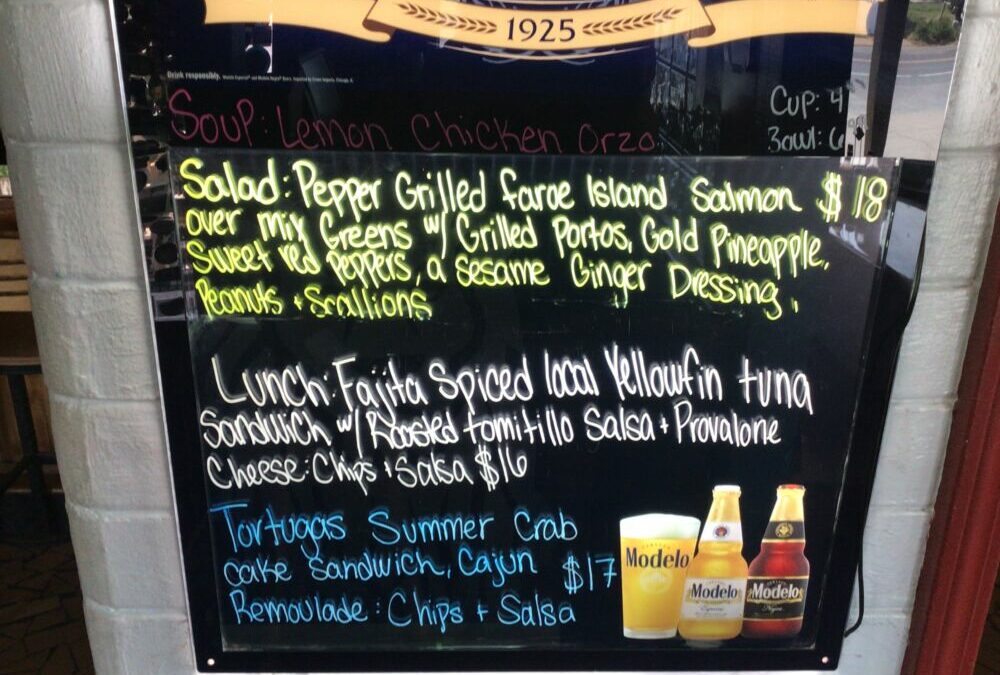 1925
Drink responsibly.
Soup: Lemon Chicken Orzo
Cup: 4
Bowl: 6
Salad: Pepper Grilled faroe Island Salmon $18
over mix Greens w/ Grilled Portos, Gold Pineapple,
Sweet red Peppers, a Sesame Ginger Dressing,
Peanuts + Scallions
Lunch: Fajita Spiced local Yellowfin tuna
Sandwich w/ Roasted tomitillo Salsa + Provalone
Cheese: Chips + Salsa $16
Tortugas Summer Crab
cake Sandwich, Cajun $17
Remoulade: Chips + Salsa
Modelo
Modelo
Especial
Modelo
Negra